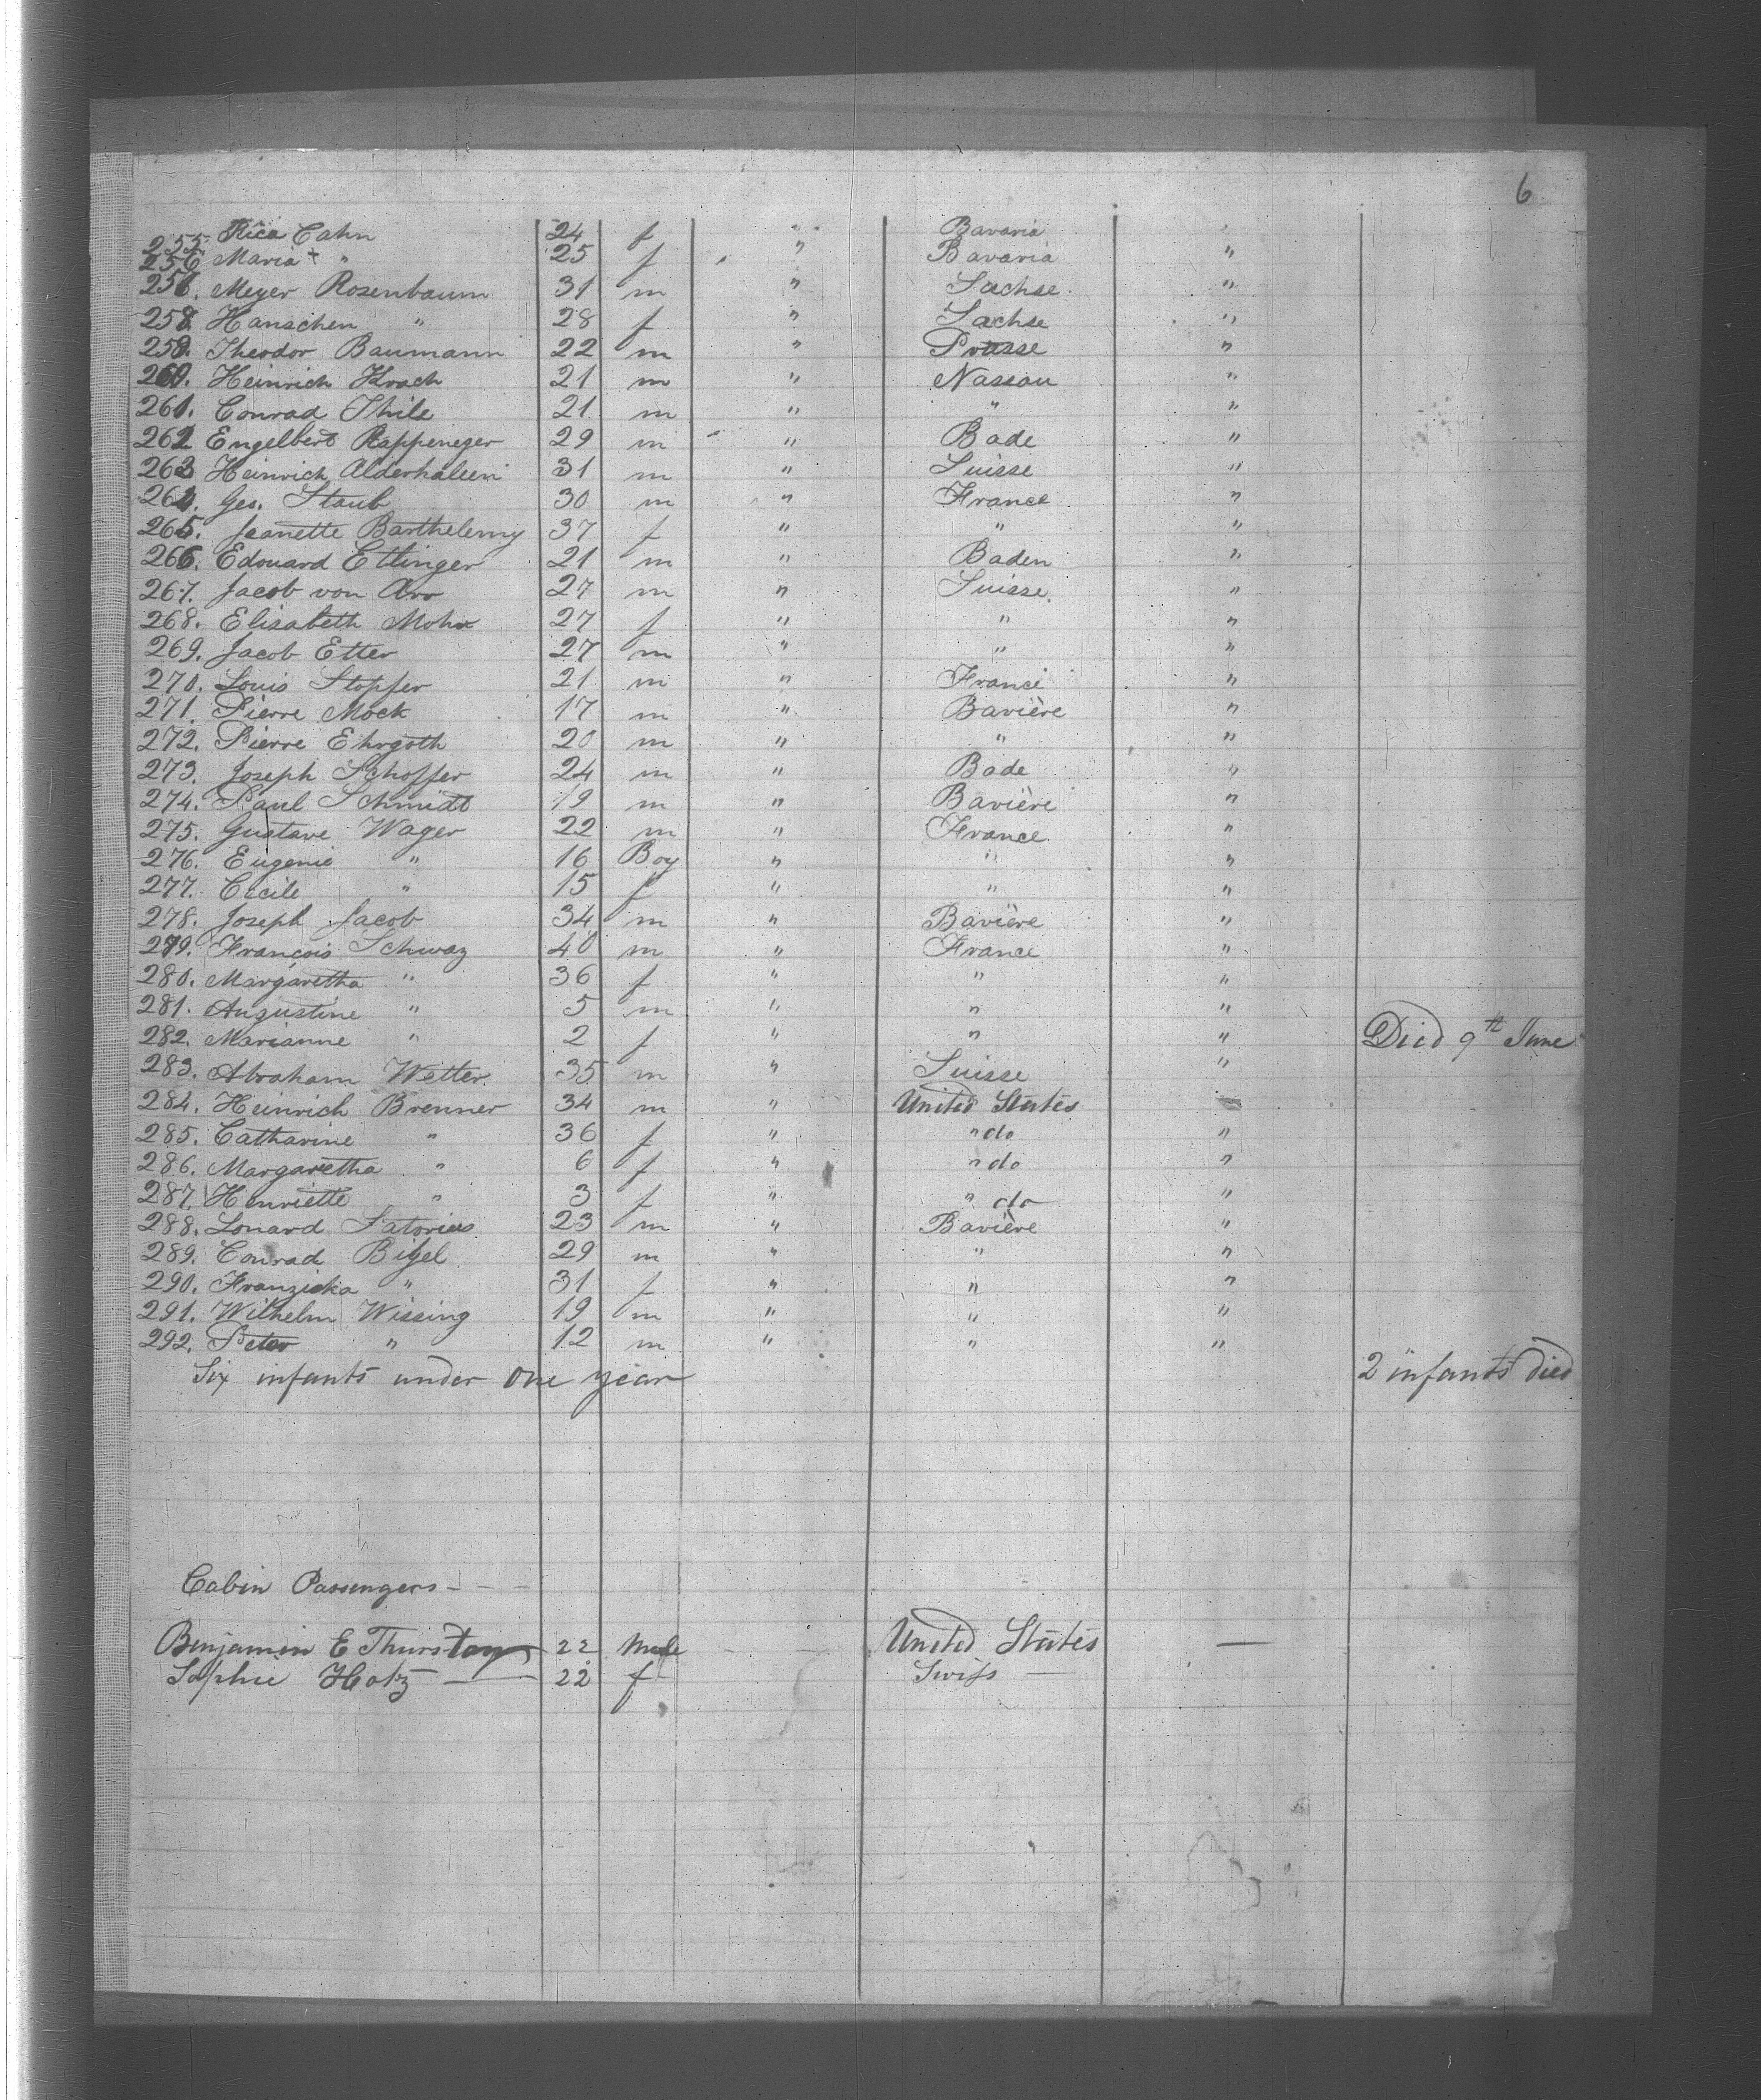 6
255. Rica Cahn 24 f " Bavaria "
256 Maria " 25 f " Bavaria "
257. Meyer Rosenbaum 31 m " Sachse "
258. Hanschen " 28 f " Sachse "
259. Theodor Baumann 22 m " Prusse "
260. Heinrich Krach 21 m " Nassau "
261. Conrad Thile 21 m " " "
262 Engelbert Rappeneger 29 m " Bade "
263 Heinrich Alderhalsen 31 m " Suisse "
264. Geo. Staub 30 m " France "
265. Jeanette Barthelemy 37 f " " "
266. Edouard Ettinger 21 m " Baden "
267. Jacob von Arx 27 m " Suisse. "
268. Elisabeth Mohr 27 f " " "
269. Jacob Etter 27 m " " "
270. Louis Stopfer 21 m " France "
271. Pierre Mock 17 m " Bavière "
272. Pierre Ehrgoth 20 m " " "
273. Joseph Schoffer 24 m " Bade "
274. Paul Schmidt 19 m " Bavière "
275. Gustave Wager 22 m " France "
276. Eugenie " 16 Boy " " "
277. Cecile " 15 f " " "
278. Joseph Jacob 34 m " Bavière "
279. François Schwaz 40 m " France "
280. Margaretha " 36 f " " "
281. Augustine " 5 m " " "
282. Marianne " 2 f " " " Died 9th June
283. Abraham Wetter. 35 m " Suisse "
284. Heinrich Brenner 34 m " United States
285. Catharine " 36 f " " do "
286. Margaretha " 6 f " " do "
287. Henriette " 3 f " " do "
288. Lonard Satorius 23 m " Bavière "
289. Conrad Bisel 29 m " " "
290. Franziska " 31 f " " "
291. Wilhelm Wissing 19 m " " "
292. Peter " 12 m " " "
Six infants under one year 2 infants died
Cabin Passengers - - -
Benjamin E Thurston 22 Male - - United States —
Sophie Hotz — 22 f Swiss —